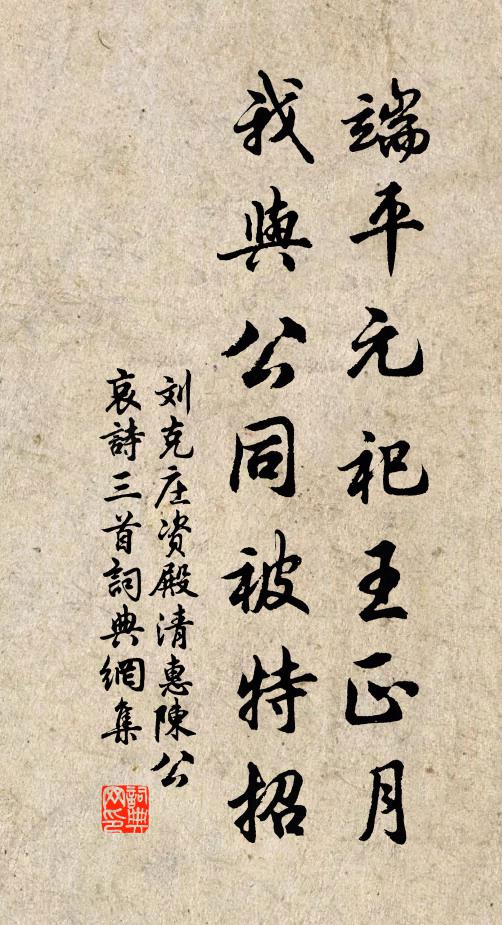 端平元祀王正月
我與公同被特招
刘克庄资殿清惠陳公
哀詩三首詞典網集
詞典网印